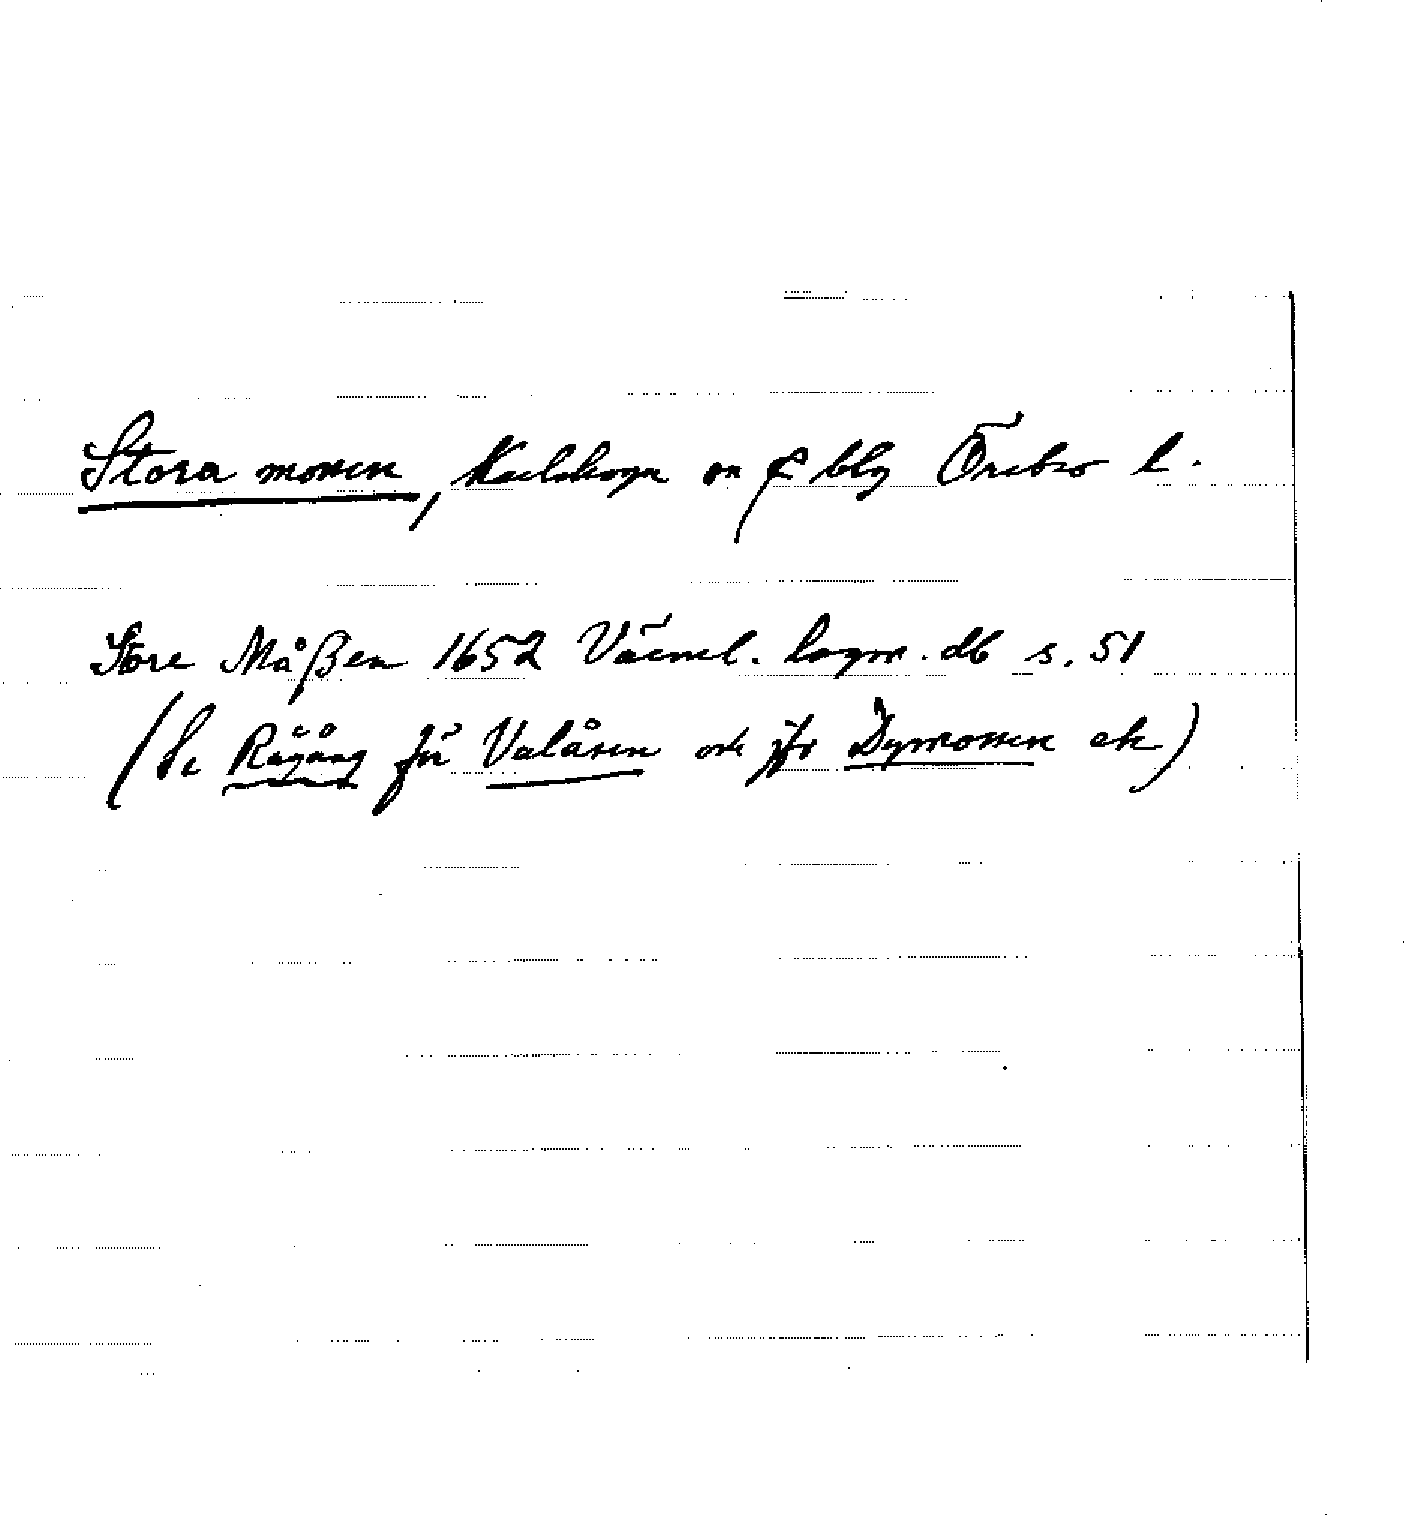 Stora mossen, Karlskoga sn o blg Örebro l.
Store Måßen 1652 Värml. lagm. db s. 51
(Se Rågång för Valåsen och jfr Dymossen etc)